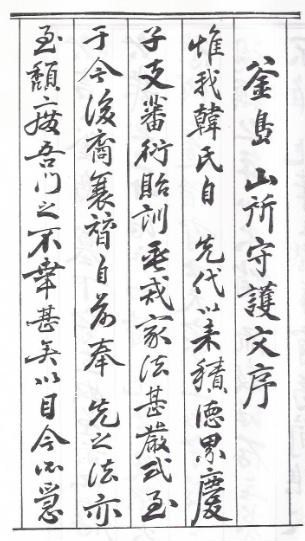 釜島山所守護文序
惟我韓氏自 先代以来積德累慶
子支蕃衍貽訓垂戒家法甚嚴式至
于今後裔襄替自前奉 先之法亦
至頹廢吾門之不幸甚矣以目今所急